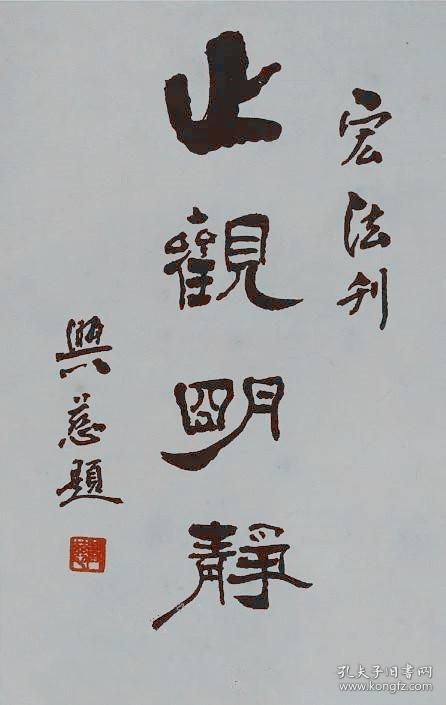 宏法刊
止觀明靜
興慈題
孔夫子旧书网
www.kongfz.com